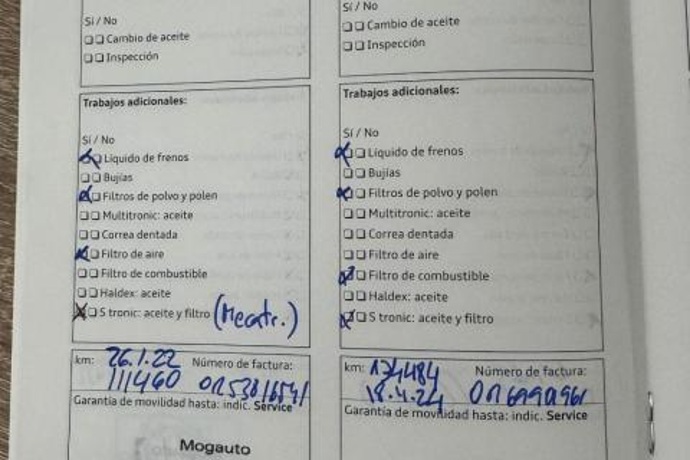 Sí / No
Cambio de aceite
Inspección
Trabajos adicionales:
Sí / No
Líquido de frenos
Bujías
Filtros de polvo y polen
Multitronic: aceite
Correa dentada
Filtro de aire
Filtro de combustible
Haldex: aceite
S tronic: aceite y filtro (Mecatr.)
km: 26.1.22 Número de factura:
111460
Garantía de movilidad hasta: indic. Service
Mogauto
Sí / No
Cambio de aceite
Inspección
Trabajos adicionales:
Sí / No
Líquido de frenos
Bujías
Filtros de polvo y polen
Multitronic: aceite
Correa dentada
Filtro de aire
Filtro de combustible
Haldex: aceite
S tronic: aceite y filtro
km: 134484 Número de factura:
18.4.24
Garantía de movilidad hasta: indic. Service